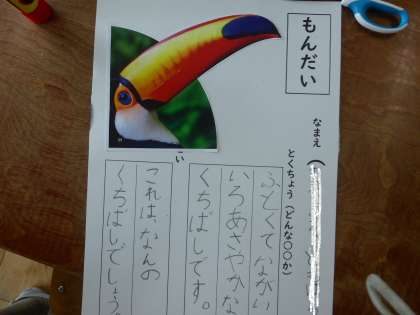 もんだい
なまえ（
とくちょう（どんな○○か）
ふとくてながい
いろあざやかな
くちばしです。
い
これは、なんの
くちばしでしょう。